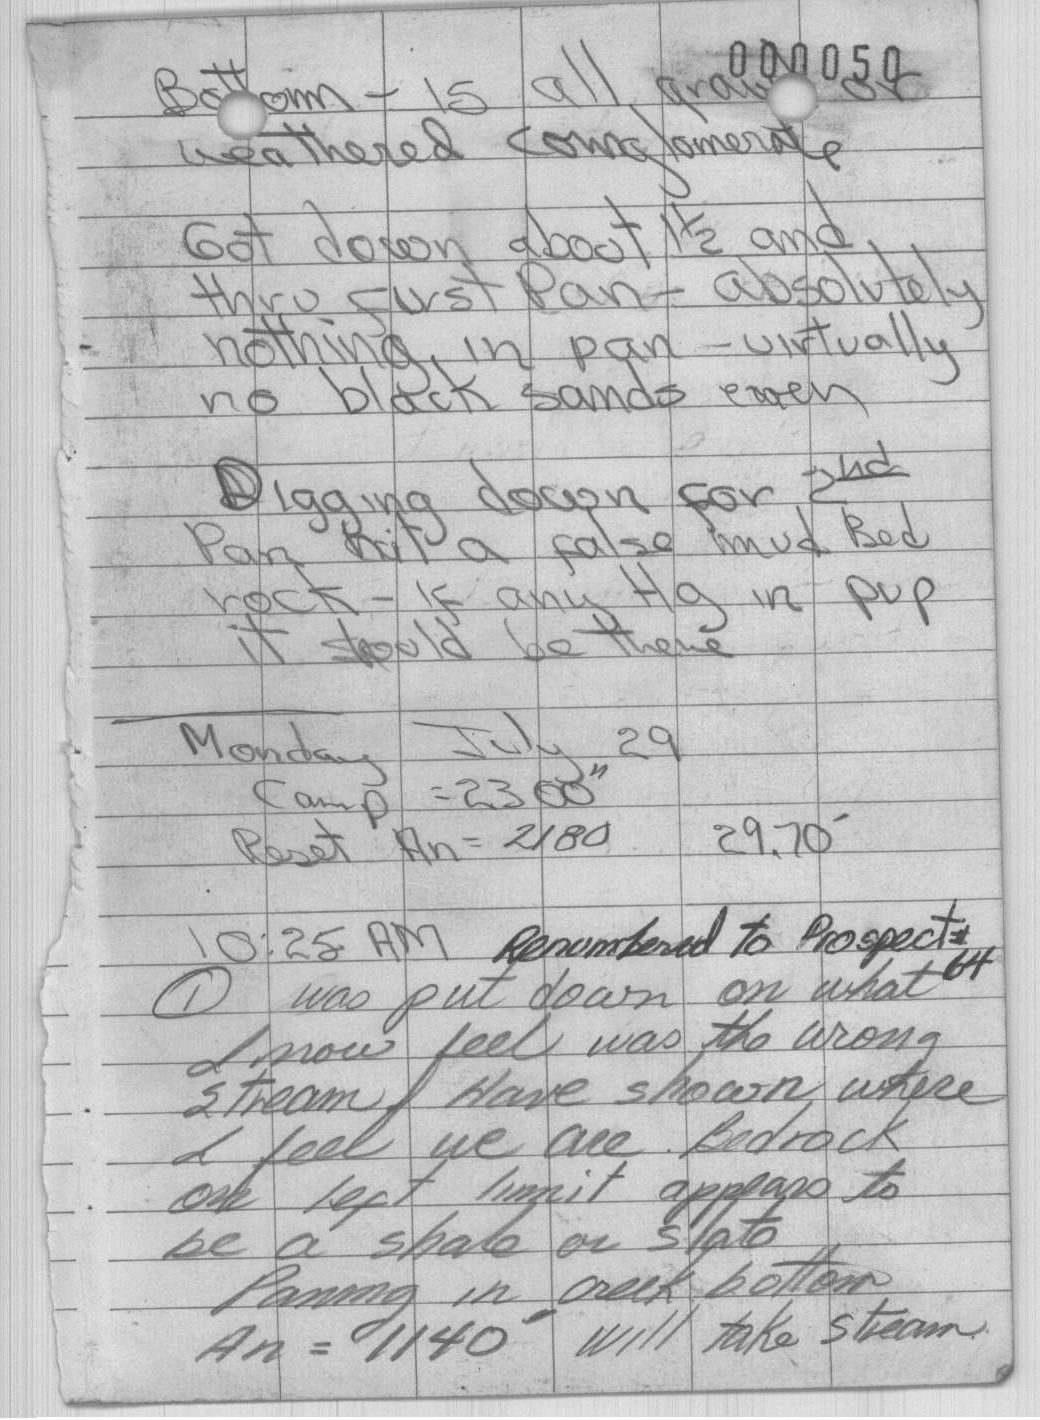 000050
Bottom - is all gravel or
weathered conglomerate
Got down about 1½ and
thru first Pan - absolutely
nothing in pan - virtually
no black sands even
Digging down for 2nd
Pan hit a false mud Bed
rock - If any Hg in pup
it should be there
Monday July 29
Camp = 2300"
Reset An = 2180 29.70'
10:25 AM Renumbered to Prospect #
64
① was put down on what
I now feel was the wrong
stream, Have shown where
I feel we are. Bedrock
on left limit appears to
be a shale or slate
Panning in creek bottom
An = 1140" Will take stream